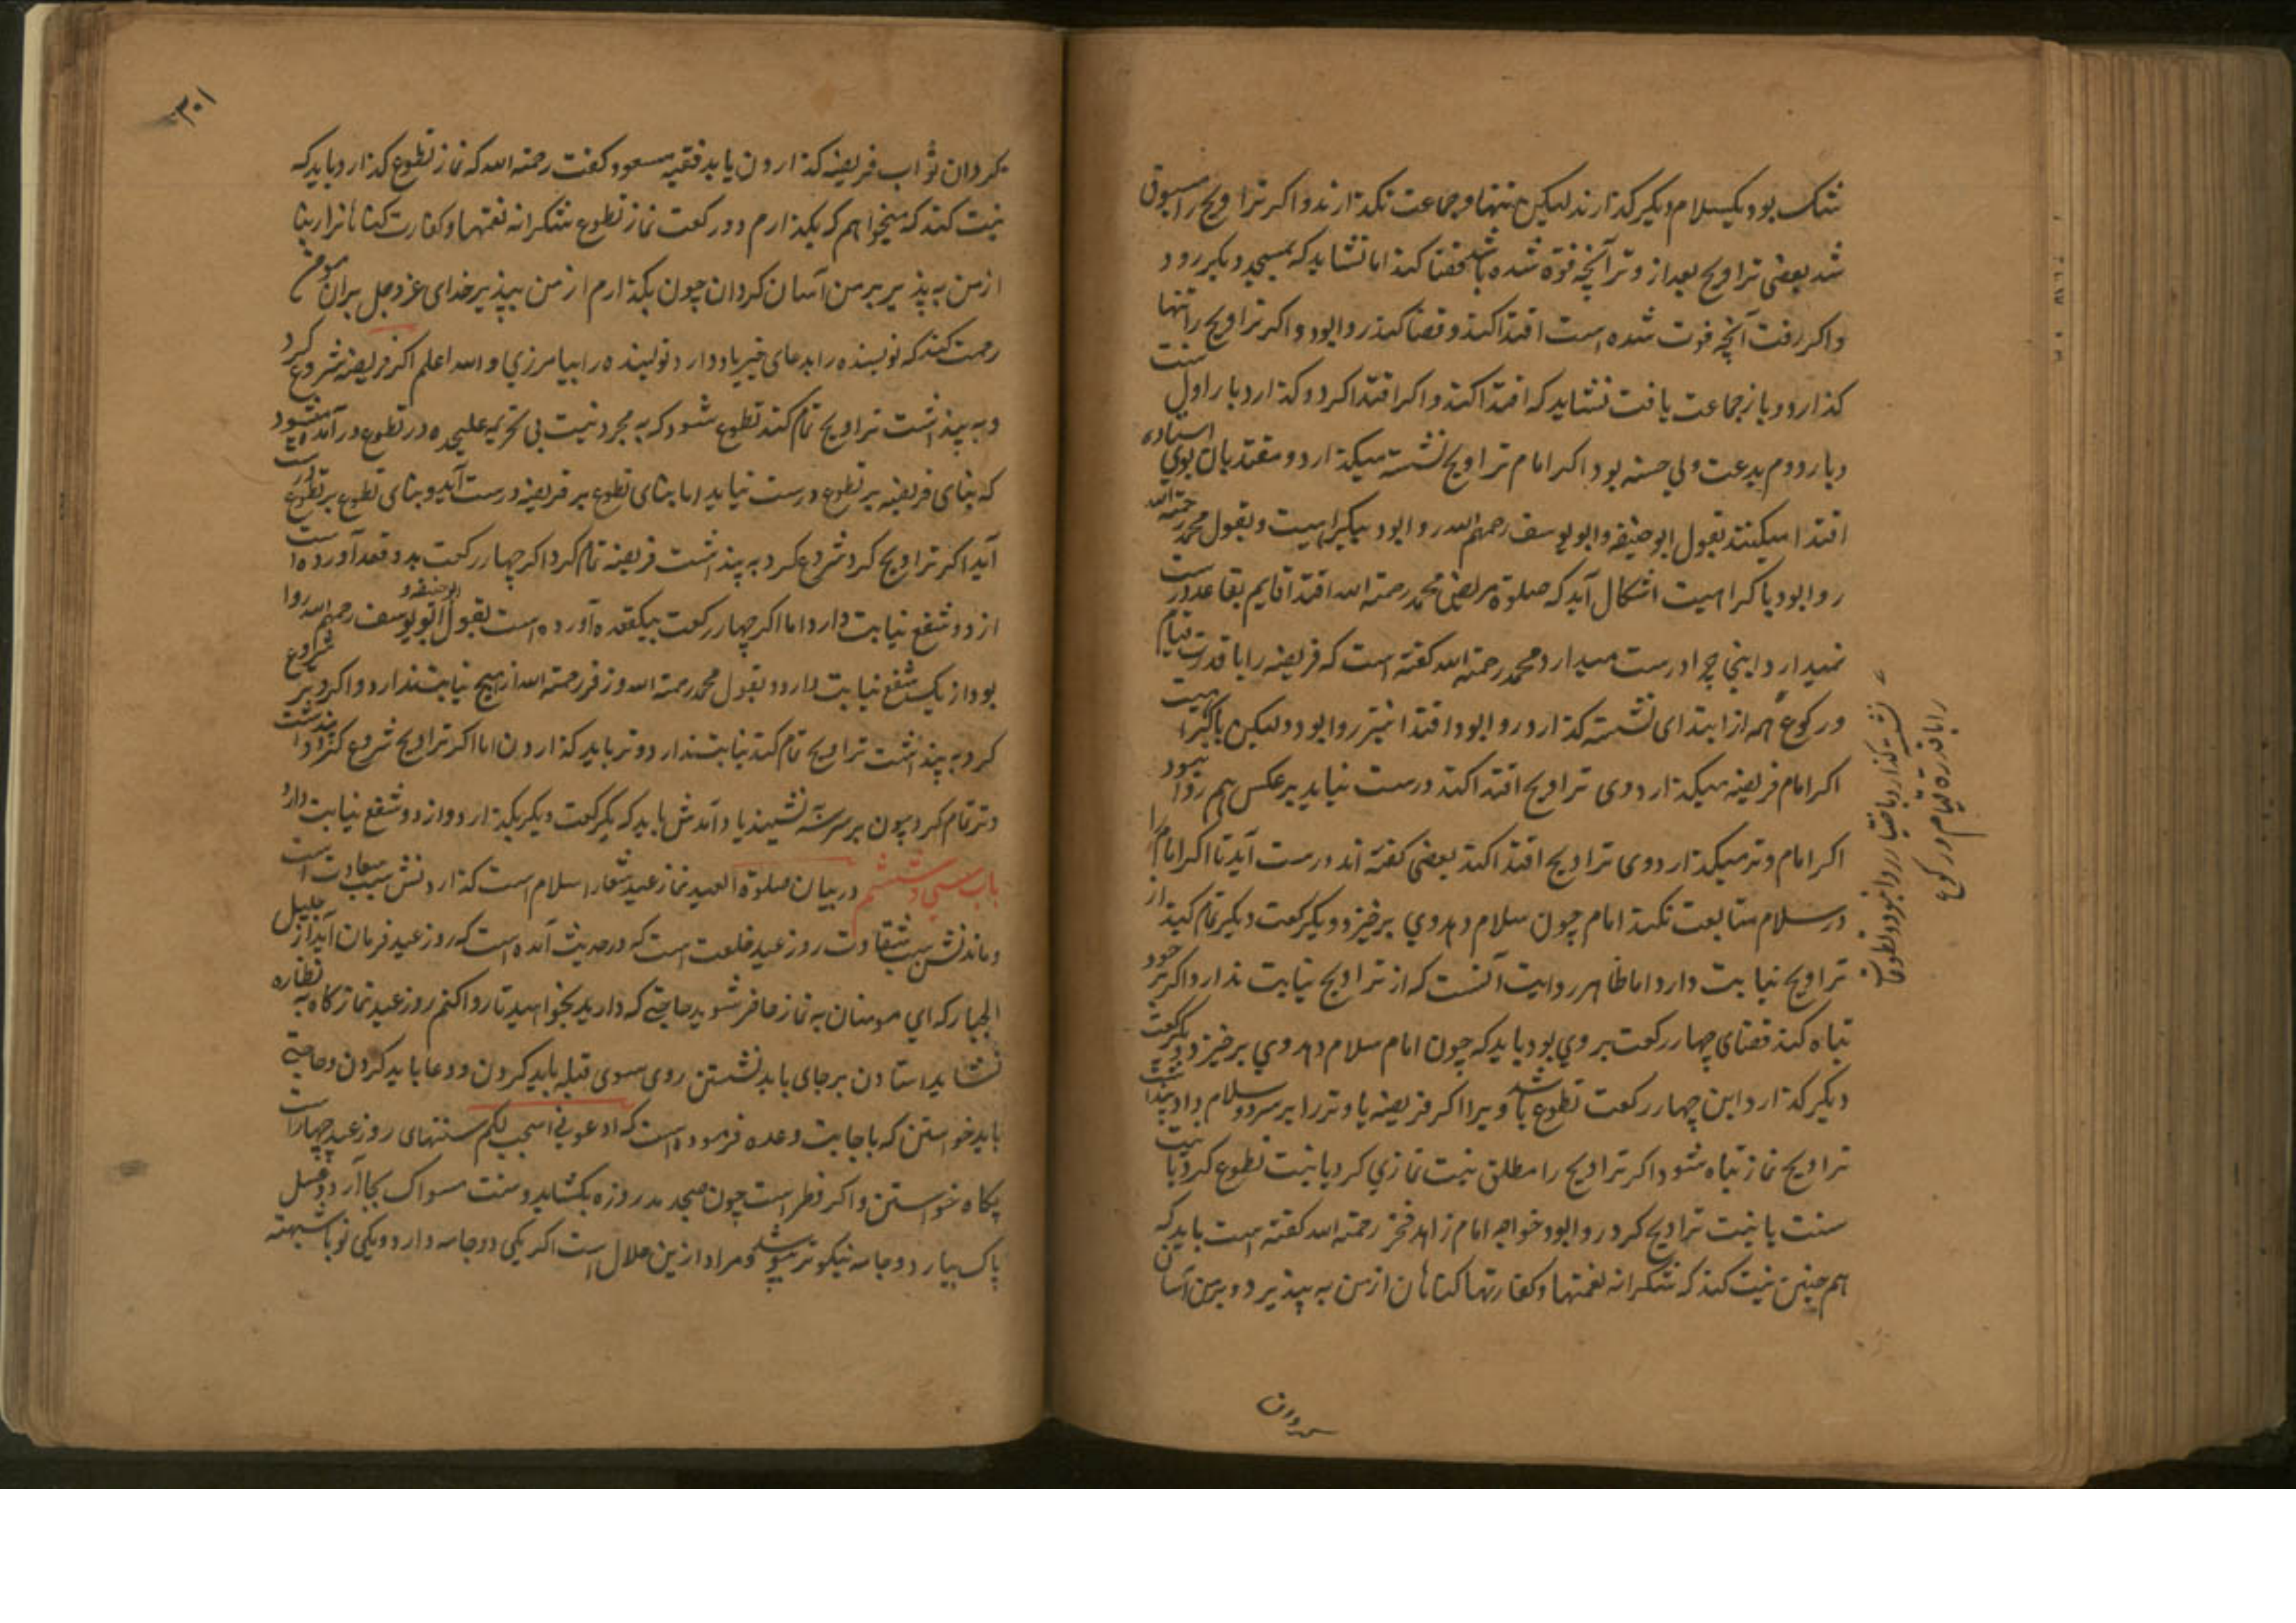 شک بود یکسلام دیگر گذارند لیکن تنها و جماعت نگذارند و اگر تراویح را مسبوق
شد بعضی تراویح بعد از وتر آنچه فوة شده باشد قضا کند اما نشاید که بمسجد دیگر رود
و اگر رفت آنچه فوت شده است اقتدا کند و قضا کند روا بود و اگر تراویح را تنها
گذارد و باز جماعت یافت نشاید که اقتدا کند و اگر اقتدا کرد و گذارد بار اول سنت
و بار دوم بدعت ولی حسنه بود اگر امام تراویح نشسته میگذارد و مقتدیان بوی استاده
اقتدا میکنند بقول ابو حنیفه و ابو یوسف رحمهم الله روا بود بیکراهیت و بقول محمد رحمة الله
روا بود با کراهیت اشکال آید که صلوة مریض محمد رحمة الله اقتدا قایم بقاعد درست
نمیدارد اینجا چرا درست میدارد محمد رحمة الله گفته است که فریضه را با قدرت قیام
و رکوع همه از ابتدای نشسته گذارد روا بود و اقتدا نیز روا بود ولیکن با کراهیت
اگر امام فریضه میگذارد وی تراویح اقتدا کند درست نیاید بر عکس هم روا نبود
اگر امام وتر میگذارد وی تراویح اقتدا کند بعضی گفته اند درست آید تا اگر امام را
در سلام متابعت نکند امام چون سلام دهد وی برخیزد و یکرکعت دیگر تمام کند از
تراویح نیابت دارد اما ظاهر روایت آنست که از تراویح نیابت ندارد و اگر وتر خود
تباه کند قضای چهار رکعت بر وی بود باید که چون امام سلام دهد وی برخیزد و یکرکعت
دیگر گذارد این چهار رکعت تطوع باشد ویرا اگر فریضه یا وتر را بر سر دو سلام داد بپنداشت
تراویح نماز تباه شود اگر تراویح را مطلق نیت نمازی کرد یا نیت تطوع کرد یا نیت
سنت یا نیت تراویح کرد روا بود خواجه امام زاهد فخر رحمة الله گفته است باید که
هم چنین نیت کند که شکرانه نعمتها و کفارتها گناهان از من به پذیر و بر من آسان
را با قدرة قیام و رکوع
کردان ثواب فریضه گذاردن یابد فقیه مسعود گفت رحمة الله که نماز تطوع گذارد باید که
نیت کند که میخواهم که بگذارم دو رکعت نماز تطوع شکرانه نعمتها و کفارت گناهانرا ربنا
از من به پذیر بر من آسان کردان چون بگذارم از من بپذیر خدای عز و جل بر آن مومن
رحمت کند که نویسنده را بدعای خیر یاد دارد نویسنده را بیامرزی و الله اعلم اگر فریضه شروع کرد
و به پنداشت تراویح تمام کند تطوع شود که به مجرد نیت بی تحریمه علیحده در تطوع در آمده میشود
که بنای فریضه بر تطوع درست نیاید اما بنای تطوع بر فریضه درست آید و بنای تطوع بر تطوع درست
آید اگر تراویح کرد شروع کرد به پنداشت فریضه تمام کرد اگر چهار رکعت بدو قعد آورده است
از دو شفع نیابت دارد اما اگر چهار رکعت بیکقعده آورده است بقول ابو حنیفه و ابو یوسف رحمهم الله روا
بود از یک شفع نیابت دارد و بقول محمد رحمة الله و زفر رحمة الله از هیچ نیابت ندارد و اگر وتر شروع
کرد به پنداشت تراویح تمام کند نیابت ندارد وتر باید گذاردن اما اگر تراویح شروع کرد و پنداشت
وتر تمام کرد چون بر سر سه نشیند یاد آمدش باید که یکرکعت دیگر بگذارد و از دو شفع نیابت دارد
باب سی و ششم در بیان صلوة العید نماز عید شعار اسلام است که گذاردنش سبب سعادت است
و ماندنش سبب شقاوت روز عید خلعت است که در حدیث آمده است که روز عید فرمان آید از جلیل
الجبار که ای مومنان به نماز حاضر شوید حاجتی که دارید بخواهید تا روا کنم روز عید نماز گاه به نظاره
نشاید استادن بر جای باید نشستن روی سوی قبله باید کردن و دعا باید کردن و حاجتی
باید خواستن که باجابت وعده فرموده است که ادعونی استجب لکم سنتهای روز عید چهار است
پگاه خواستن و اگر فطر است چون صبح دمد روزه بگشاید و سنت مسواک بجا آرد و غسل
پاک بیارد و جامه نیکوتر بپوشد و مراد ازین حلال است اگر یکی دو جامه دارد و یکی نو با شبهته
۳۰۱